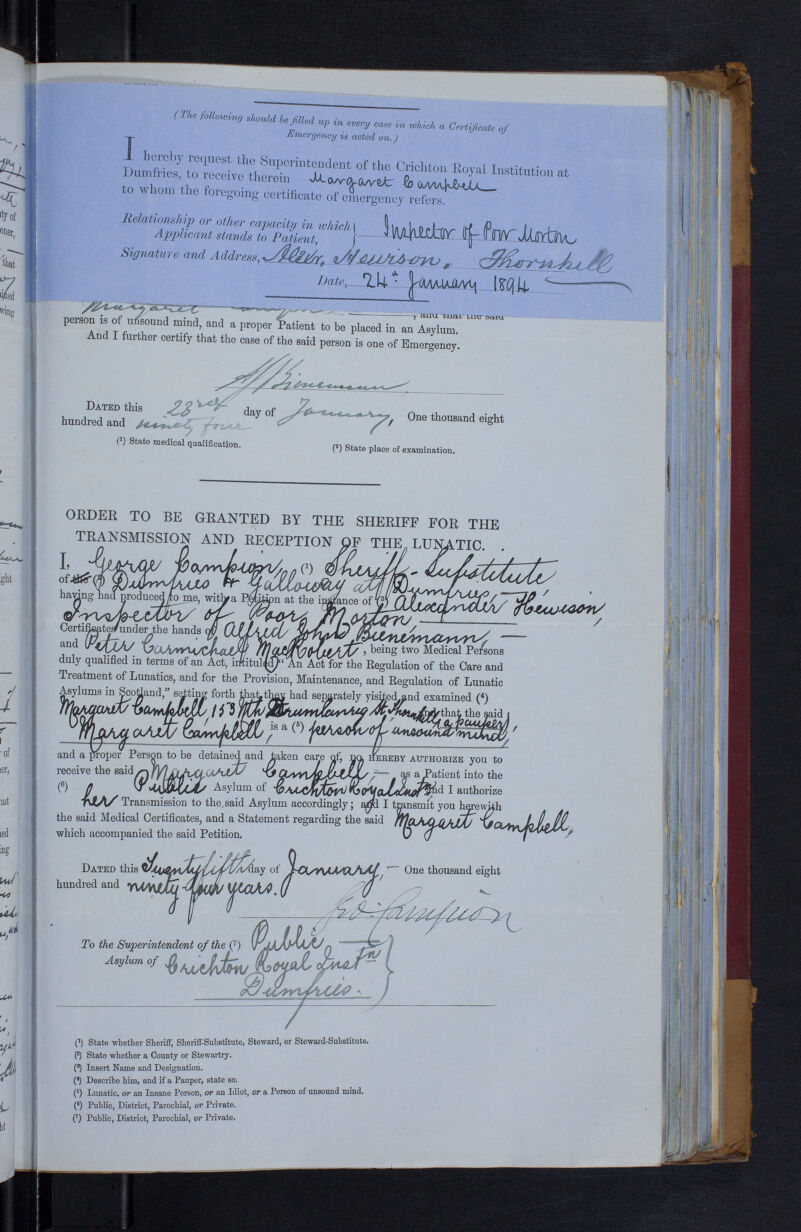 (The following should be filled up in every case in which a Certificate of
Emergency is acted on.)
I hereby request the Superintendent of the Crichton Royal Institution at
Dumfries, to receive therein Margaret Campbell
to whom the foregoing certificate of emergency refers.
Relationship or other capacity in which
Applicant stands to Patient, } Inspector of Poor Morton
Signature and Address, Alexr. Hewison, Thornhill
Date, 24th January 1894
Margaret Campbell, and that the said
person is of unsound mind, and a proper Patient to be placed in an Asylum.
And I further certify that the case of the said person is one of Emergency.
AJ Bienemann.
DATED this 23rd day of January, One thousand eight
hundred and ninety four
(1) State medical qualification. (2) State place of examination.
ORDER TO BE GRANTED BY THE SHERIFF FOR THE
TRANSMISSION AND RECEPTION OF THE LUNATIC.
I, George Campion, (1) Sheriff-Substitute,
of the (2) Dumfries & Galloway at Dumfries,
having had produced to me, with a Petition at the instance of (3) Alexander Hewison,
Inspector of Poor, Morton,
Certificates under the hands of Alfred John Bienemann, —
and Peter Carmichael MacRobert, being two Medical Persons
duly qualified in terms of an Act, intituled "An Act for the Regulation of the Care and
Treatment of Lunatics, and for the Provision, Maintenance, and Regulation of Lunatic
Asylums in Scotland," setting forth that they had separately visited and examined (4)
Margaret Campbell, 153 Nth Drumlanrig St. Thornhill (a pauper), that the said
Margaret Campbell, is a (5) person of unsound mind,
and a proper Person to be detained and taken care of, DO HEREBY AUTHORIZE you to
receive the said Margaret Campbell, — as a Patient into the
(6) Public Asylum of Crichton Royal Instn and I authorize
her Transmission to the said Asylum accordingly; and I transmit you herewith
the said Medical Certificates, and a Statement regarding the said Margaret Campbell,
which accompanied the said Petition.
DATED this Twentyfifth day of January, — One thousand eight
hundred and ninety four years.
Geo. Campion
To the Superintendent of the (7) Public
Asylum of Crichton Royal Instn
Dumfries.
(1) State whether Sheriff, Sheriff-Substitute, Steward, or Steward-Substitute.
(2) State whether a County or Stewartry.
(3) Insert Name and Designation.
(4) Describe him, and if a Pauper, state so.
(5) Lunatic, or an Insane Person, or an Idiot, or a Person of unsound mind.
(6) Public, District, Parochial, or Private.
(7) Public, District, Parochial, or Private.